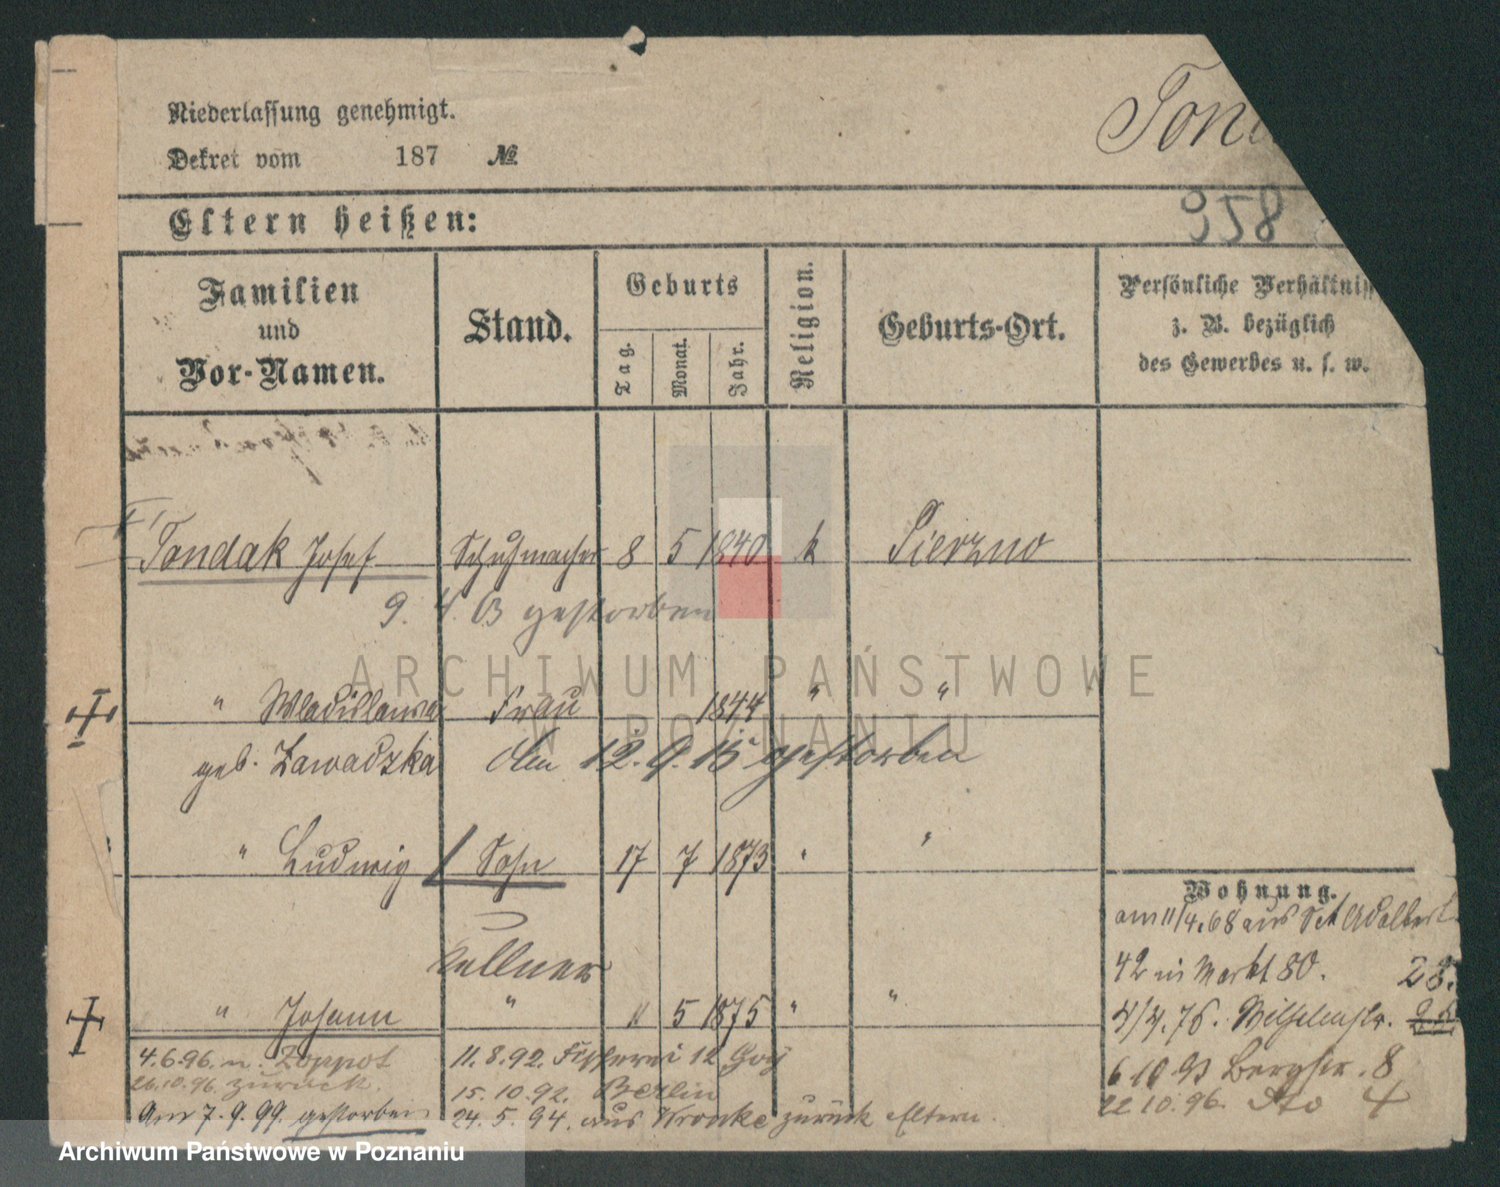 Niederlassung genehmigt.
Dekret vom 187 №
Ton
958
Eltern heißen:
Familien und Vor-Namen.
Stand.
Geburts
Tag.
Monat.
Jahr.
Religion.
Geburts-Ort.
Persönliche Verhältniss
z. B. bezüglich
des Gewerbes u. s. w.
Tondak Josef Schuhmacher 8 5 1840 k
9. 4. 03 gestorben
" Wladislawa Frau 1844 " "
geb. Zawadzka Am 12.9.15 gestorben
" Ludwig Sohn 17 7 1873 " "
Kellner
" Johann " 11 5 1875 " "
4.6.96. n. Zoppot
26.10.96. zurück.
Am 7.9.99. gestorben
11.8.92. Fischerei 12
15.10.92. Berlin
24.5.94. aus Wronke zurück Eltern.
Wohnung.
am 11/4.68 aus Sct Adalbert
42 in Markt 80. 28.
4/4.76. Wilhelmstr.
6 10 93 Bergstr. 8
22 10.96. dto 4
ARCHIWUM PAŃSTWOWE
W POZNANIU
Archiwum Państwowe w Poznaniu